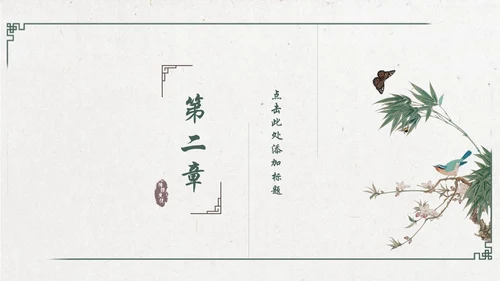 第二章
点击此处添加标题